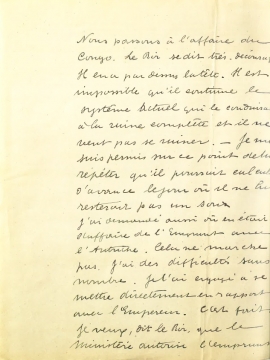 Nous passons à l'affaire du
Congo. Le Roi se dit très découragé
Il en a par dessus la tête. Il est
impossible qu'il continue le
système actuel qui le conduira
à la ruine complète et il ne
veut pas se ruiner. — Je me
suis permis sur ce point de lui
répéter qu'il pourrait calculer
d'avance le jour où il ne lui
resterait pas un sou.
J'ai demandé aussi où en était
l'affaire de l'Emprunt avec
l'Autriche. Cela ne marche
pas. J'ai des difficultés sans
nombre. Je l'ai engagé à se
mettre directement en rapport
avec l'Empereur. C'est fait.
Je veux, dit le Roi, que le
Ministère autorise l'Emprunt